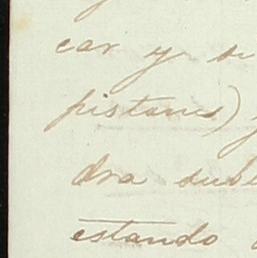 car y se
pistans)
dra sub
estando